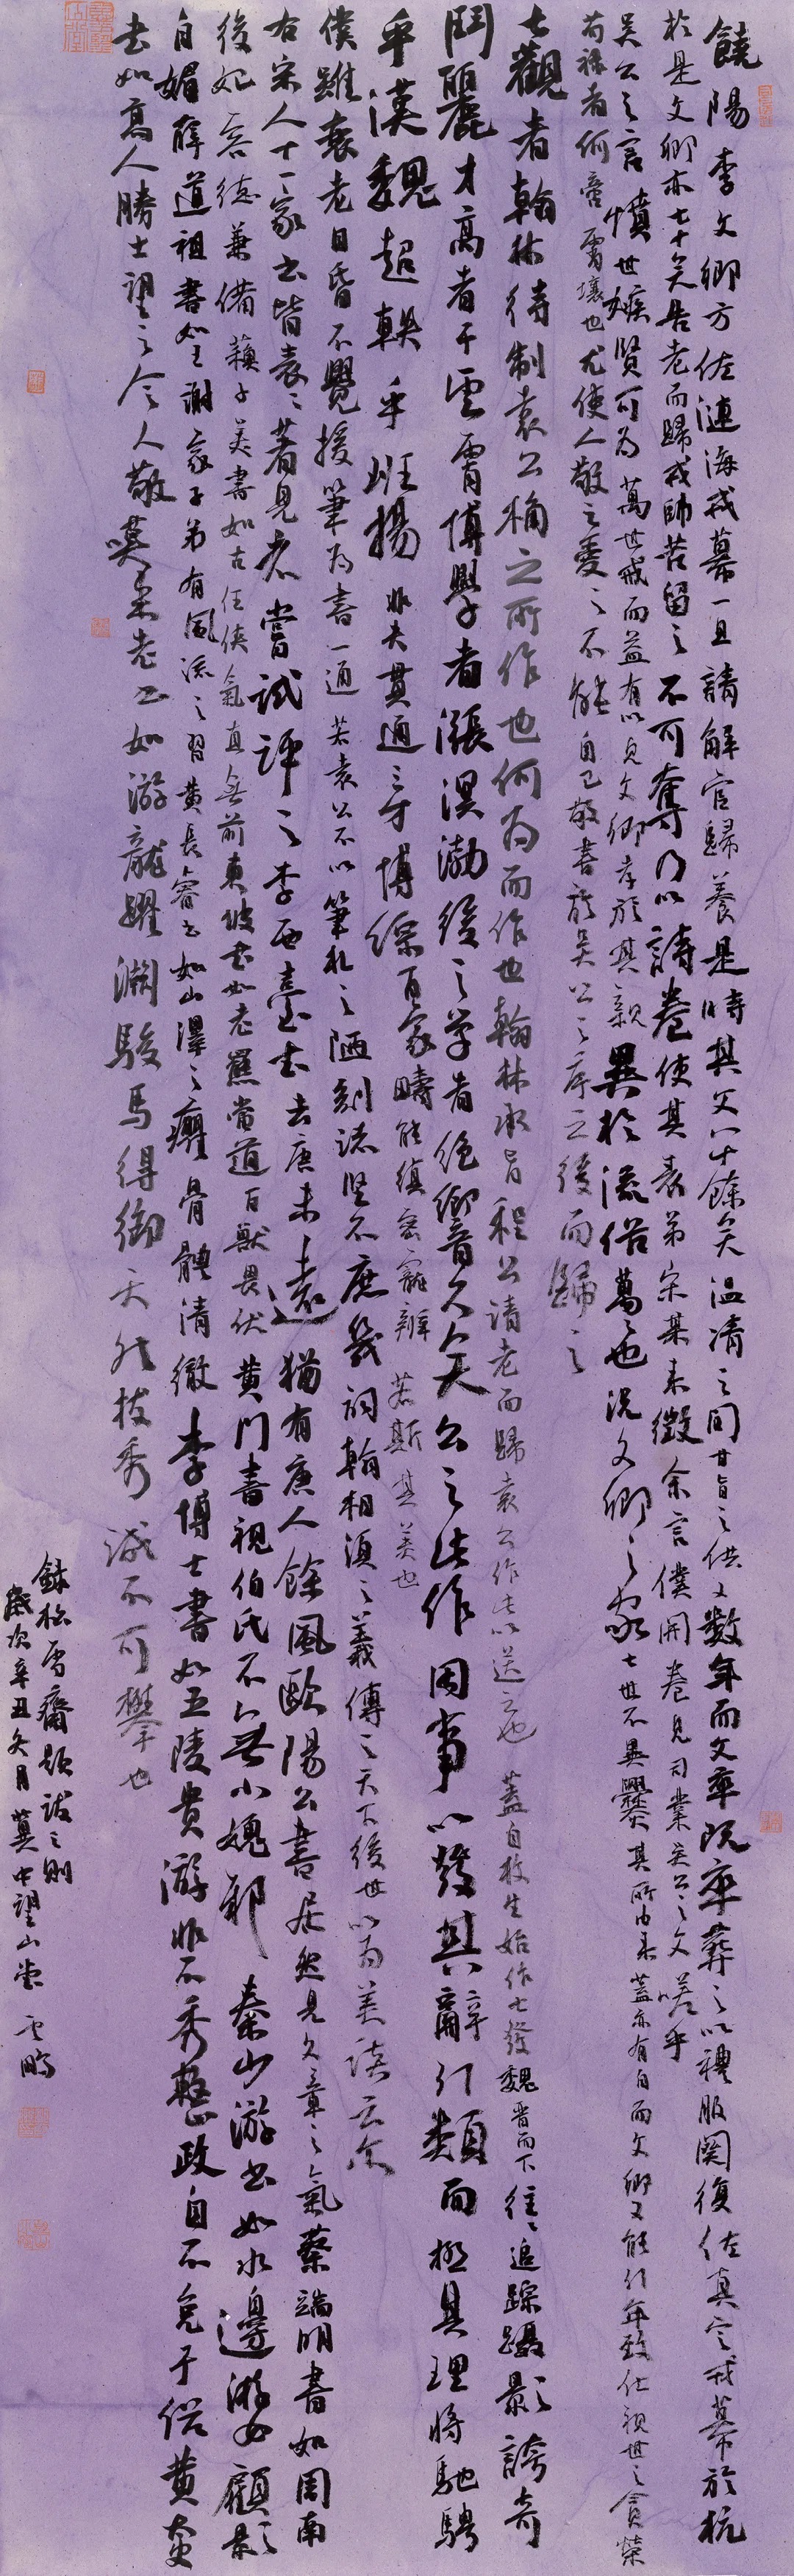 饒陽李文卿方佐漣海戎幕一旦請解官歸養是時其父八十餘矣溫凊之間甘旨之供又數年而父卒既卒葬之以禮服闋復佐真定戎幕於杭
於是文卿亦七十矣告老而歸戎帥苦留之不可奪乃以詩卷使其表弟宋某來徵余言僕開卷見司業吳公之文嗟乎
吳公之言憤世嫉賢可為萬世戒而益有以見文卿孝於其親異於流俗萬萬也況文卿之家七世不異爨其所由來蓋亦有自而文卿又能引年致仕視世之貪榮
苟祿者何啻霄壤也尤使人敬之愛之不能自已敬書於吳公之序之後而歸之
七觀者翰林待制袁公桷之所作也何為而作也翰林承旨程公請老而歸袁公作此以送之也蓋自枚生始作七發魏晉而下往往追踪躡影誇奇
鬥麗才高者干雲霄博學者漲溟渤後之學者絕響久矣公之此作因事以發其辭引類而極其理將馳騁
乎漢魏超軼乎班揚非夫貫通三才博綜百家疇能縝密寵辯若斯其美也
僕雖衰老目昏不覺援筆為書一通若袁公不以筆札之陋刻諸堅石庶幾詞翰相須之義傳之天下後世以為美談云爾
右宋人十一家書皆表表著見者嘗試評之李西臺書去唐未遠猶有唐人餘風歐陽公書居然見文章之氣蔡端明書如周南
後妃容德兼備蘇子美書如古任俠氣直無前東坡書如老羆當道百獸畏伏黃門書視伯氏不無小愧耶秦少游書如水邊游女顧影
自媚薛道祖書如王謝家子弟有風流之習黃長睿書如山澤之癯骨體清徹李博士書如五陵貴游非不秀整政自不免于俗黃太史
書如高人勝士望之令人敬嘆米老書如游龍躍淵駿馬得御天然拔秀誠不可攀也
錄松雪齋題跋之則
歲次辛丑冬月冀中望山堂雲鵬